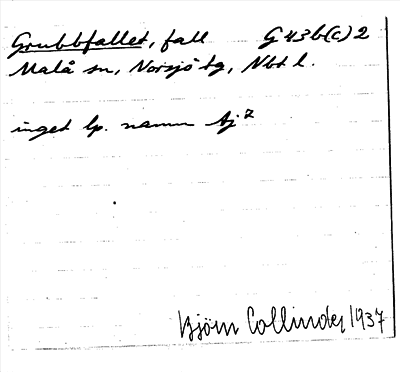 Grubbfallet, fall G 43b(c) 2
Malå sn, Norsjö tg, Nbt l.
inget lp. namn Aj²
Björn Collinder 1937